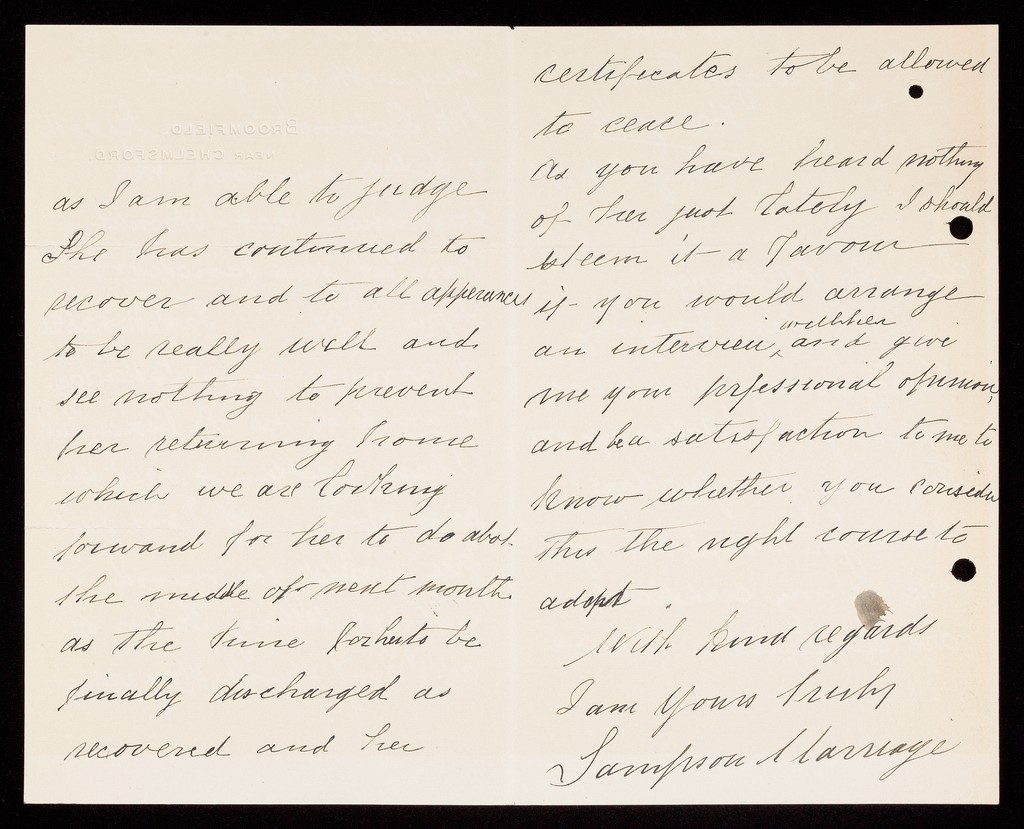 BROOMFIELD
NEAR CHELMSFORD
as I am able to judge
She has continued to
recover and to all apperances
to be really well and
see nothing to prevent
her returning home
which we are looking
forward for her to do abot
the middle of next month
as the time for her to be
finally discharged as
recovered and her
certificates to be allowed
to ceace.
As you have heard nothing
of her just lately I should
esteem it a favour
if you would arrange
with her
an interview, and give
me your prfessional opinion,
and be a satisfaction to me to
know whether you consider
this the right course to
adopt.
With kind regards
I am Yours truly
Sampson Marriage